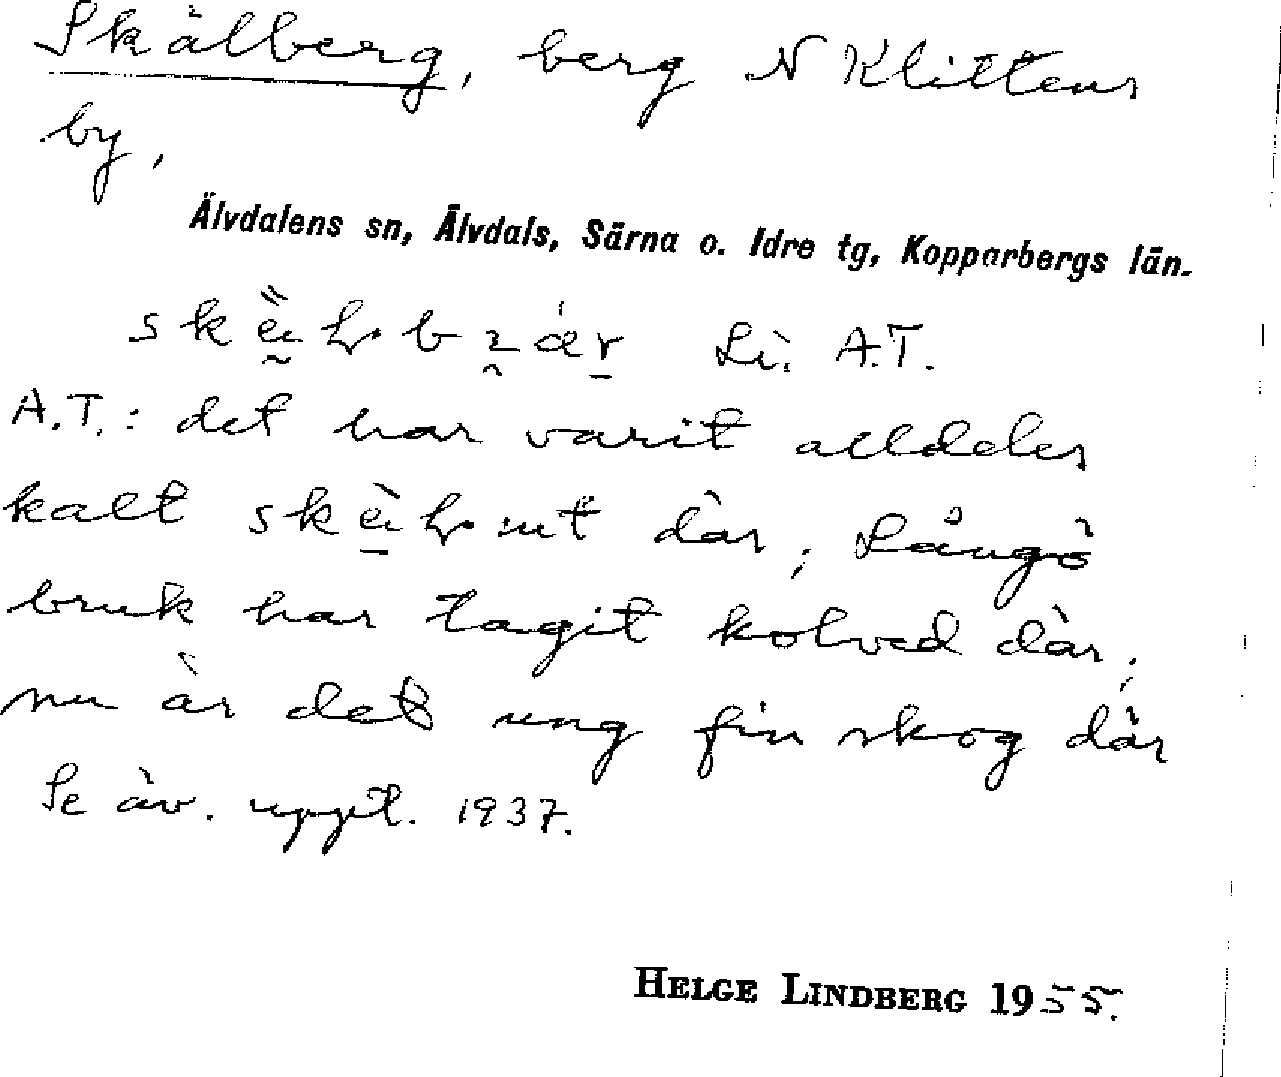 Skälberg, berg N Klittens
by,
Älvdalens sn, Älvdals, Särna o. Idre tg, Kopparbergs län.
Li. A.T.
A.T.: det har varit alldeles
kalt där; Långö
bruk har tagit kolved där;
nu är det ung fin skog där
Se äv. uppt. 1937.
HELGE LINDBERG 1955.